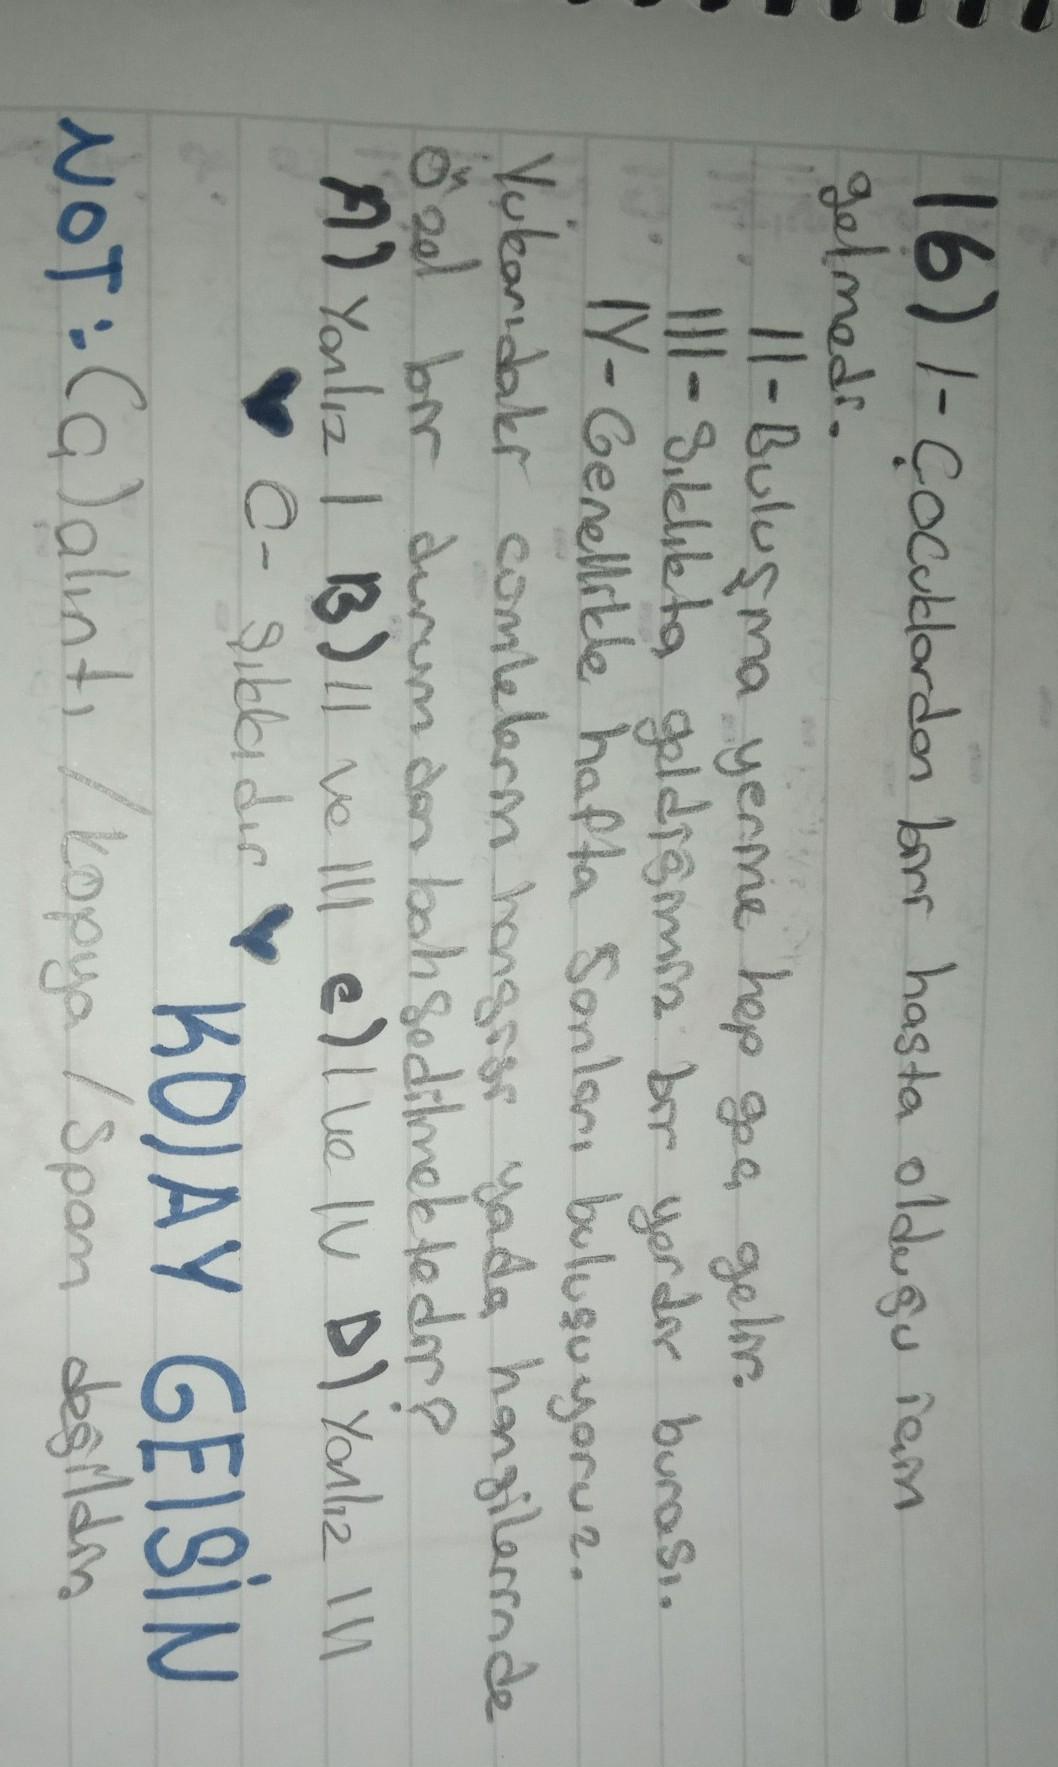 16) I- Çocuklardan biri hasta olduğu için
gelmedi.
II- Buluşma yerine hep geç gelir.
III- Sıklıkla geldiğimiz bir yerdir burası.
IV- Genellikle hafta sonları buluşuyoruz.
Yukarıdaki cümlelerin hangisi yada hangilerinde
özel bir durumdan bahsedilmektedir?
A) Yanlız I B) II ve III C) I ve IV D) Yanlız III
C- Şıkkıdır
KOLAY GELSİN
NOT: (a) alıntı / kopya / Spam değildir.